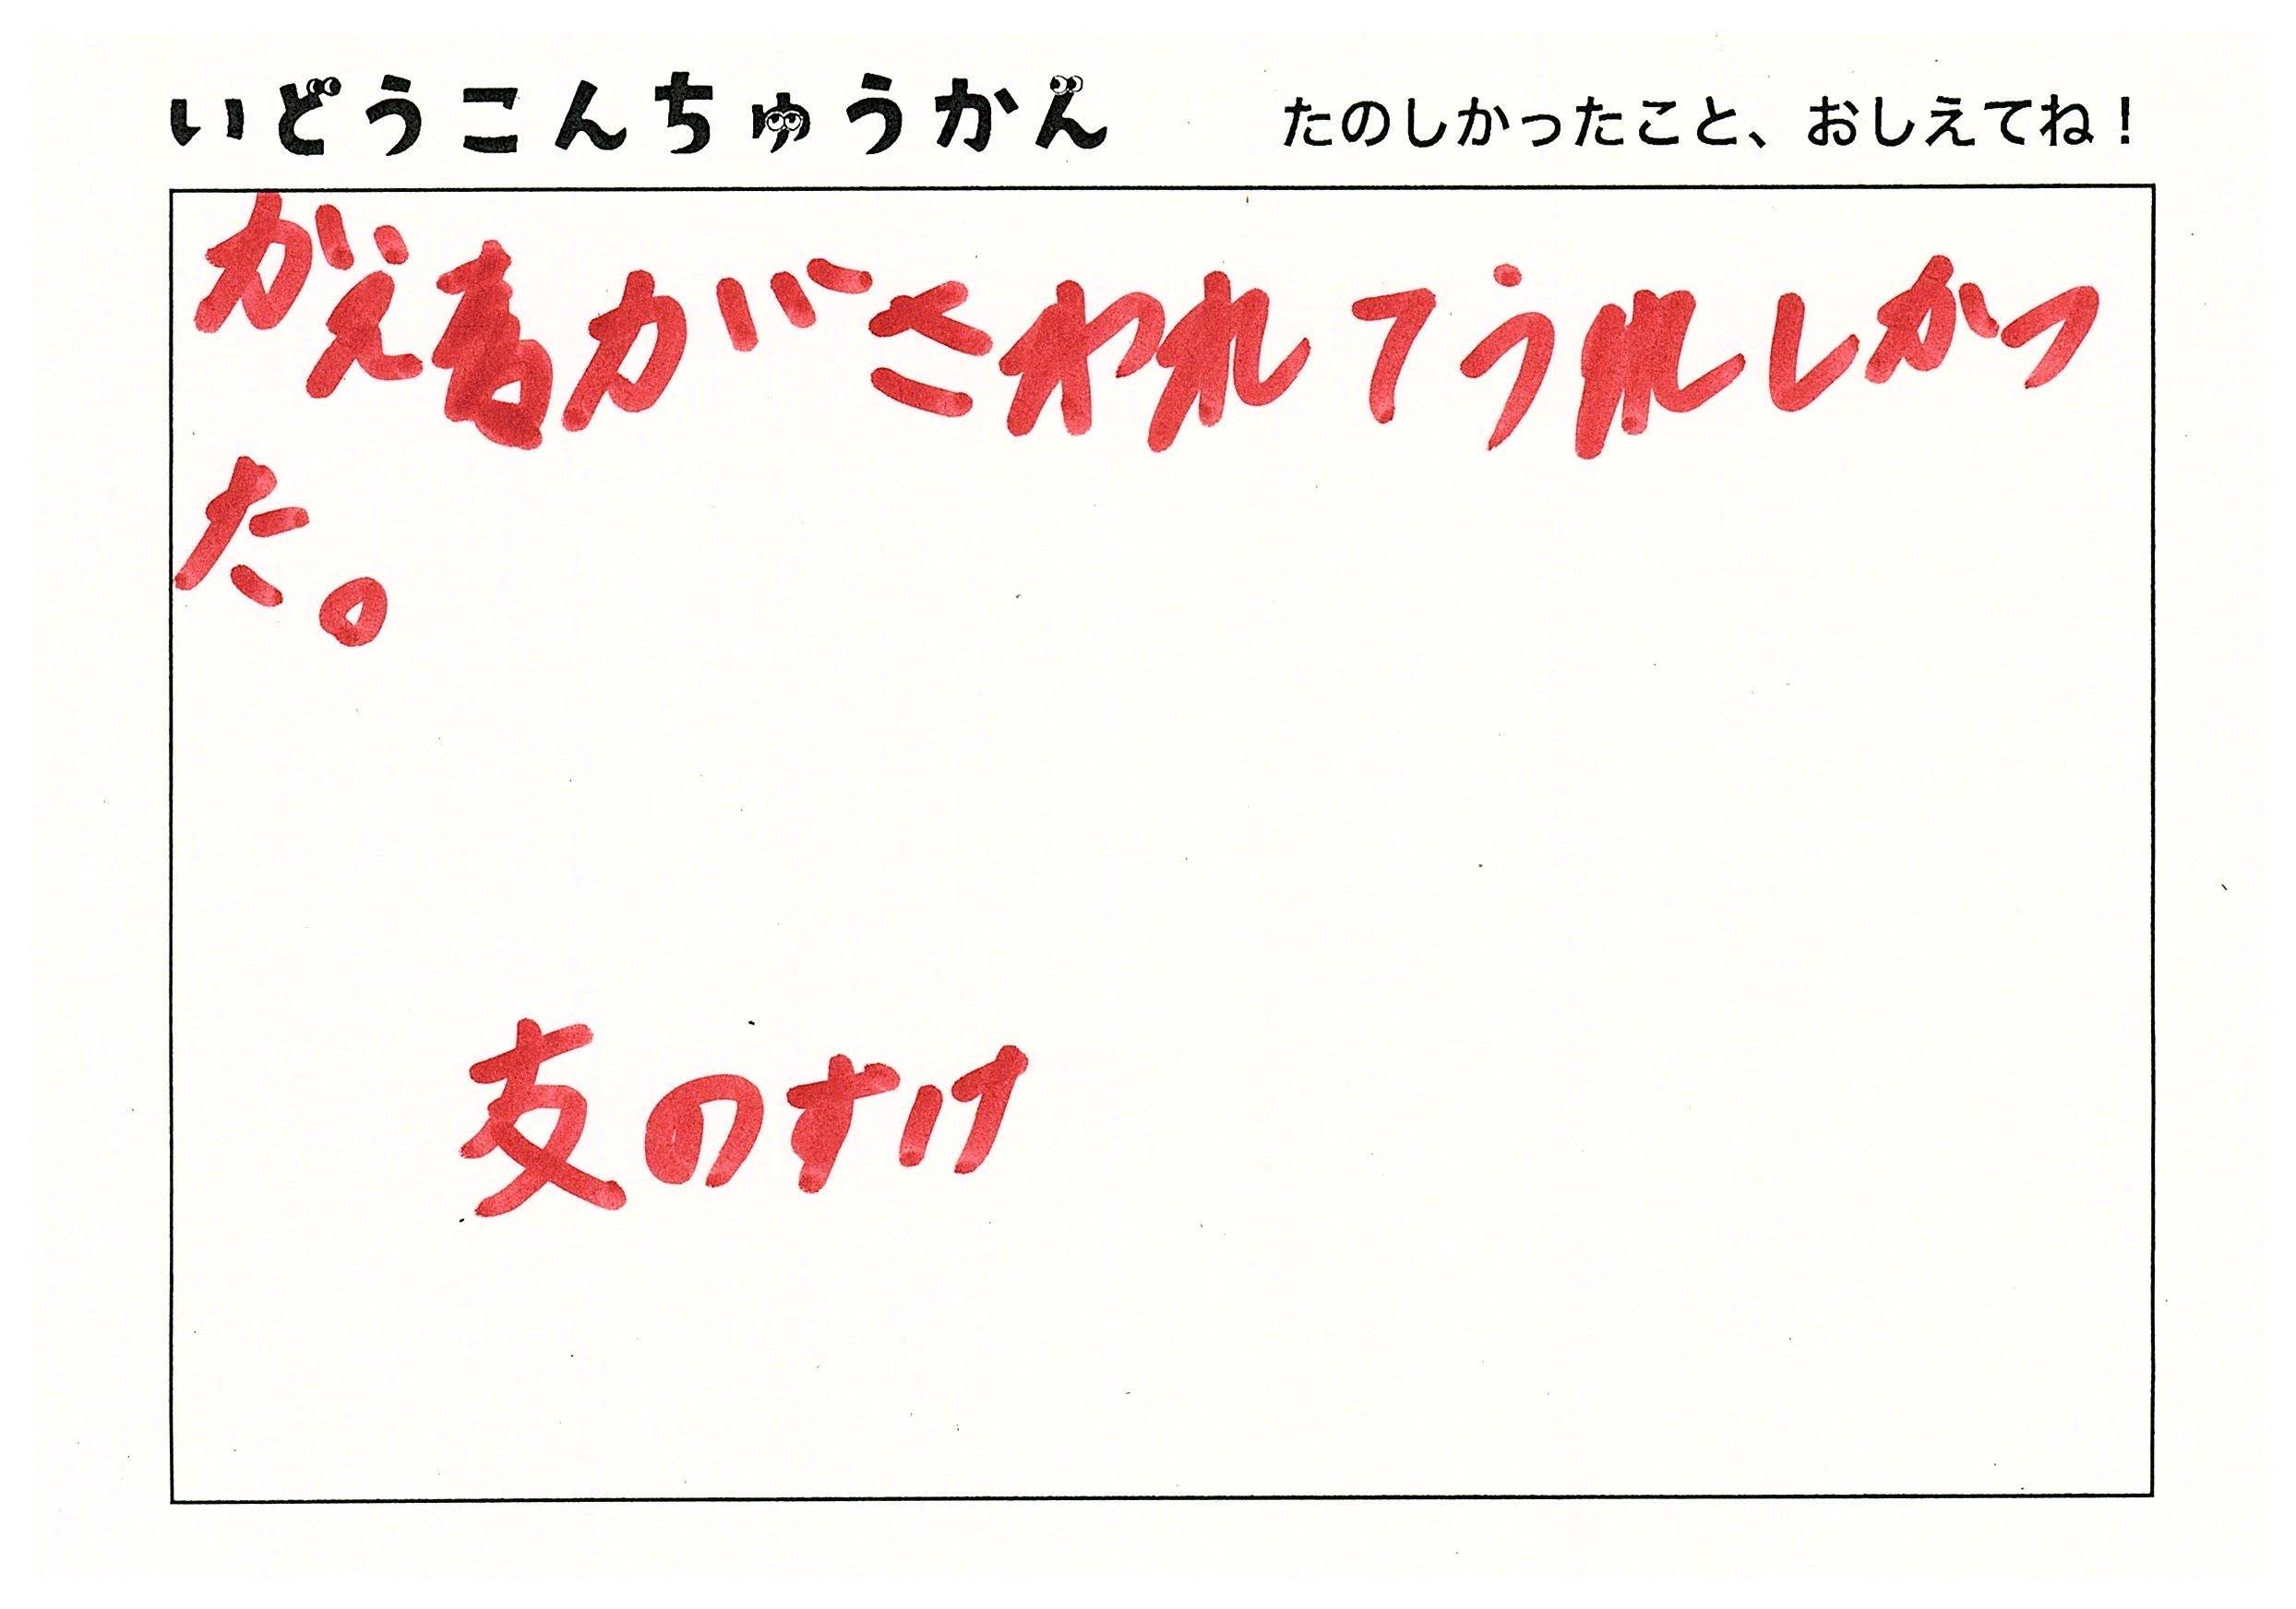 いどうこんちゅうかん たのしかったこと、おしえてね！
かえるがさわれてうれしかっ
た。
友のすけ